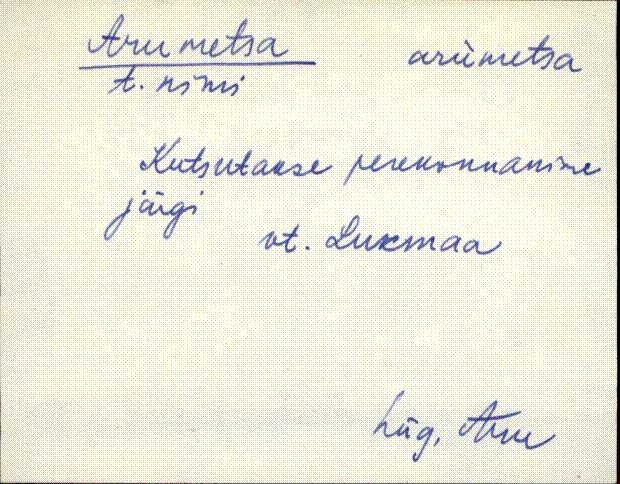 Arumetsa arùmetsa
t. nimi
Kutsutakse perekonnanime
järgi
vt. Lukmaa
Lüg, Aru